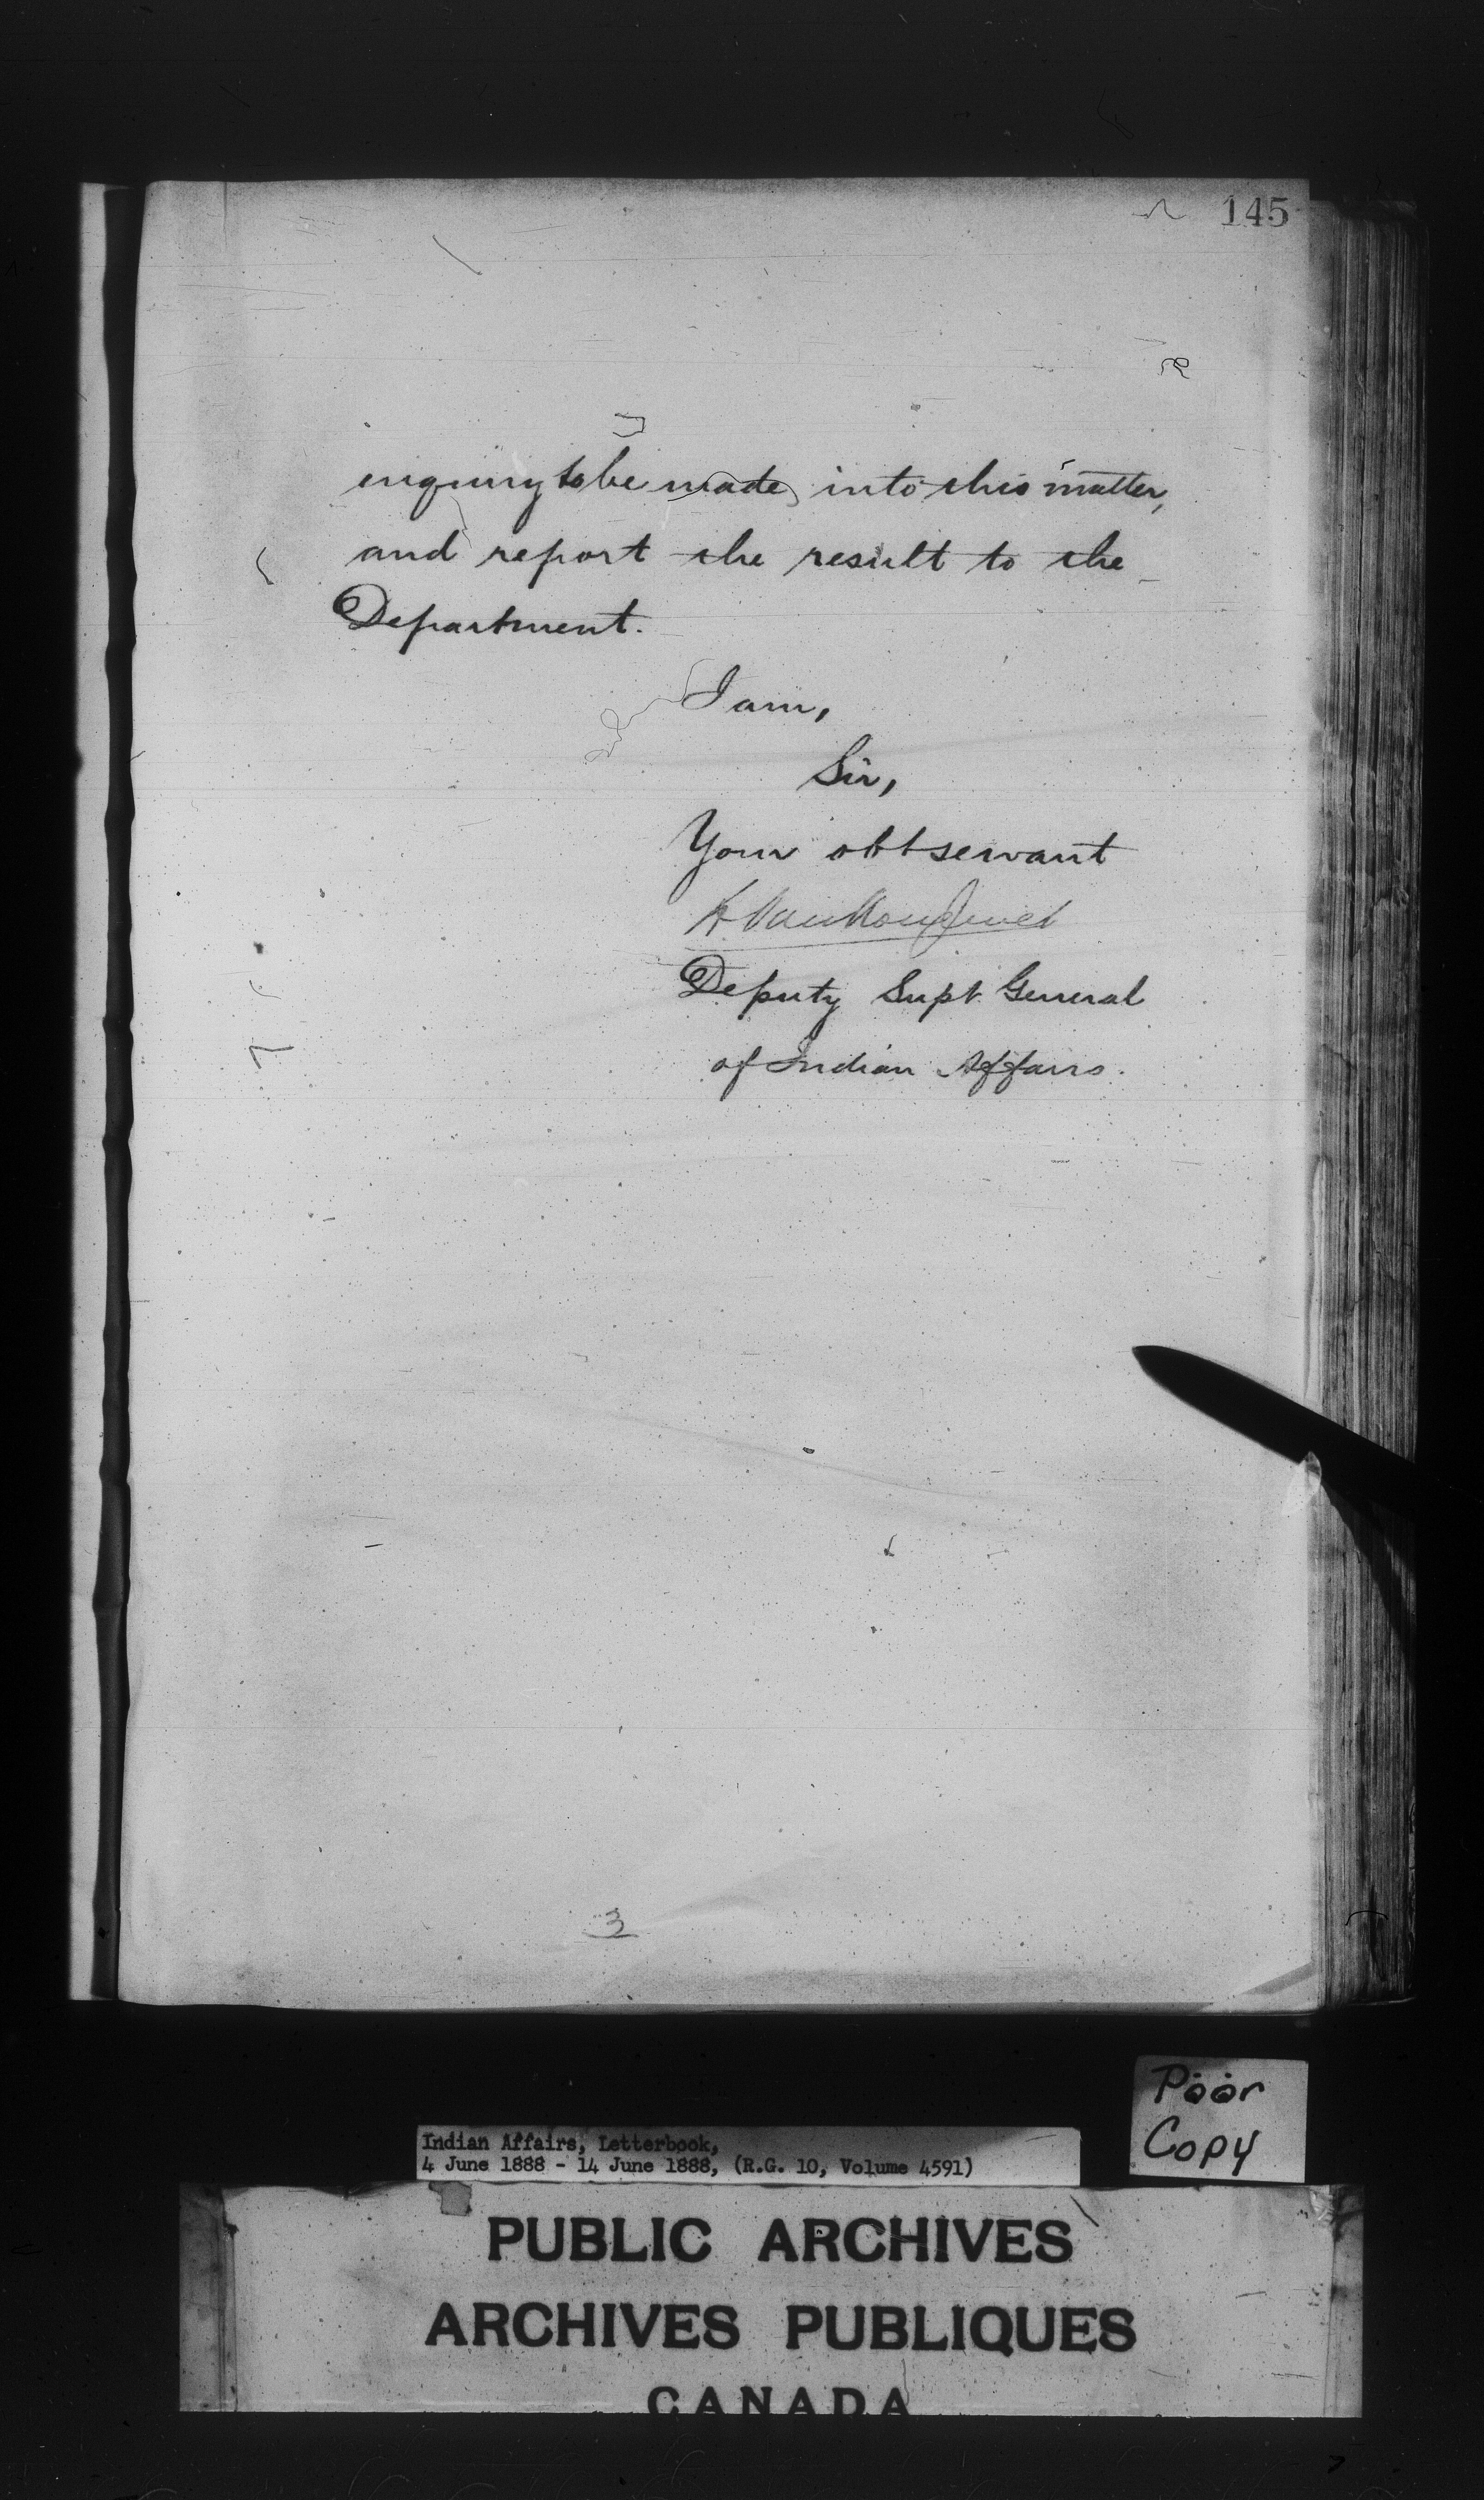 145
enquiry to be made into this matter,
and report the result to the
Department.
I am,
Sir,
Your obt servant
L Vankoughnet
Deputy Supt General
of Indian Affairs.
3
Poor
Copy
Indian Affairs, Letterbook,
4 June 1888 - 14 June 1888, (R.G. 10, Volume 4591)
PUBLIC ARCHIVES
ARCHIVES PUBLIQUES
CANADA